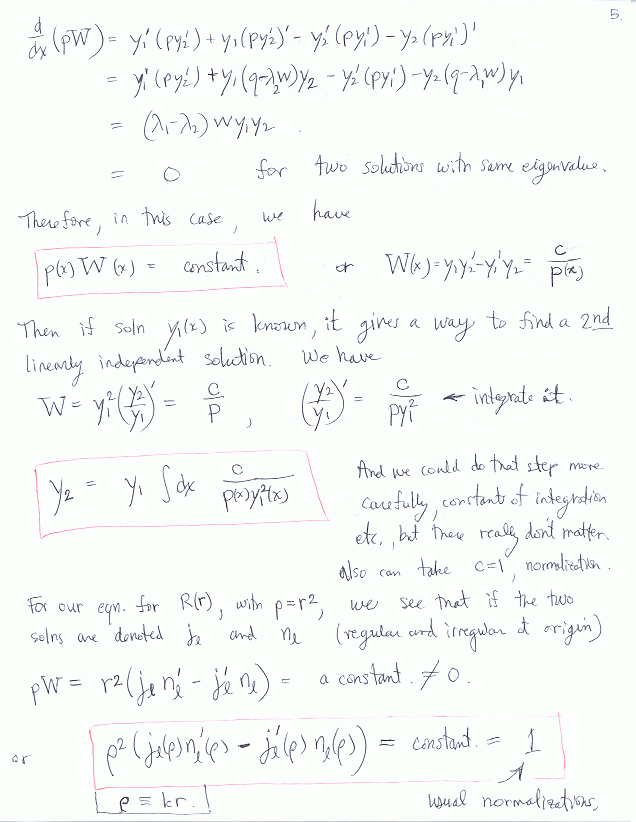 5.
d/dx (pW) = y₁'(py₂') + y₁(py₂')' - y₂'(py₁') - y₂(py₁')'
= y₁'(py₂') + y₁(q-λ₂w)y₂ - y₂'(py₁') - y₂(q-λ₁w)y₁
= (λ₁-λ₂) w y₁y₂.
= 0 for two solutions with same eigenvalue.
Therefore, in this case, we have
p(x) W(x) = constant. or W(x) = y₁y₂' - y₁'y₂ = c/p(x)
Then if soln y₁(x) is known, it gives a way to find a 2nd
linearly independent solution. We have
W = y₁² (y₂/y₁)' = c/p , (y₂/y₁)' = c/py₁² ← integrate it.
y₂ = y₁ ∫dx c/p(x)y₁²(x)
And we could do that step more
carefully, constant of integration
etc., but these really don't matter.
Also can take c=1, normalization.
For our eqn. for R(r), with p=r², we see that if the two
solns are denoted jₗ and nₗ (regular and irregular at origin)
pW = r²(jₗ nₗ' - jₗ' nₗ) = a constant. ≠ 0.
or ρ²(jₗ(ρ)nₗ'(ρ) - jₗ'(ρ)nₗ(ρ)) = constant. = 1
ρ ≡ kr. usual normalizations,